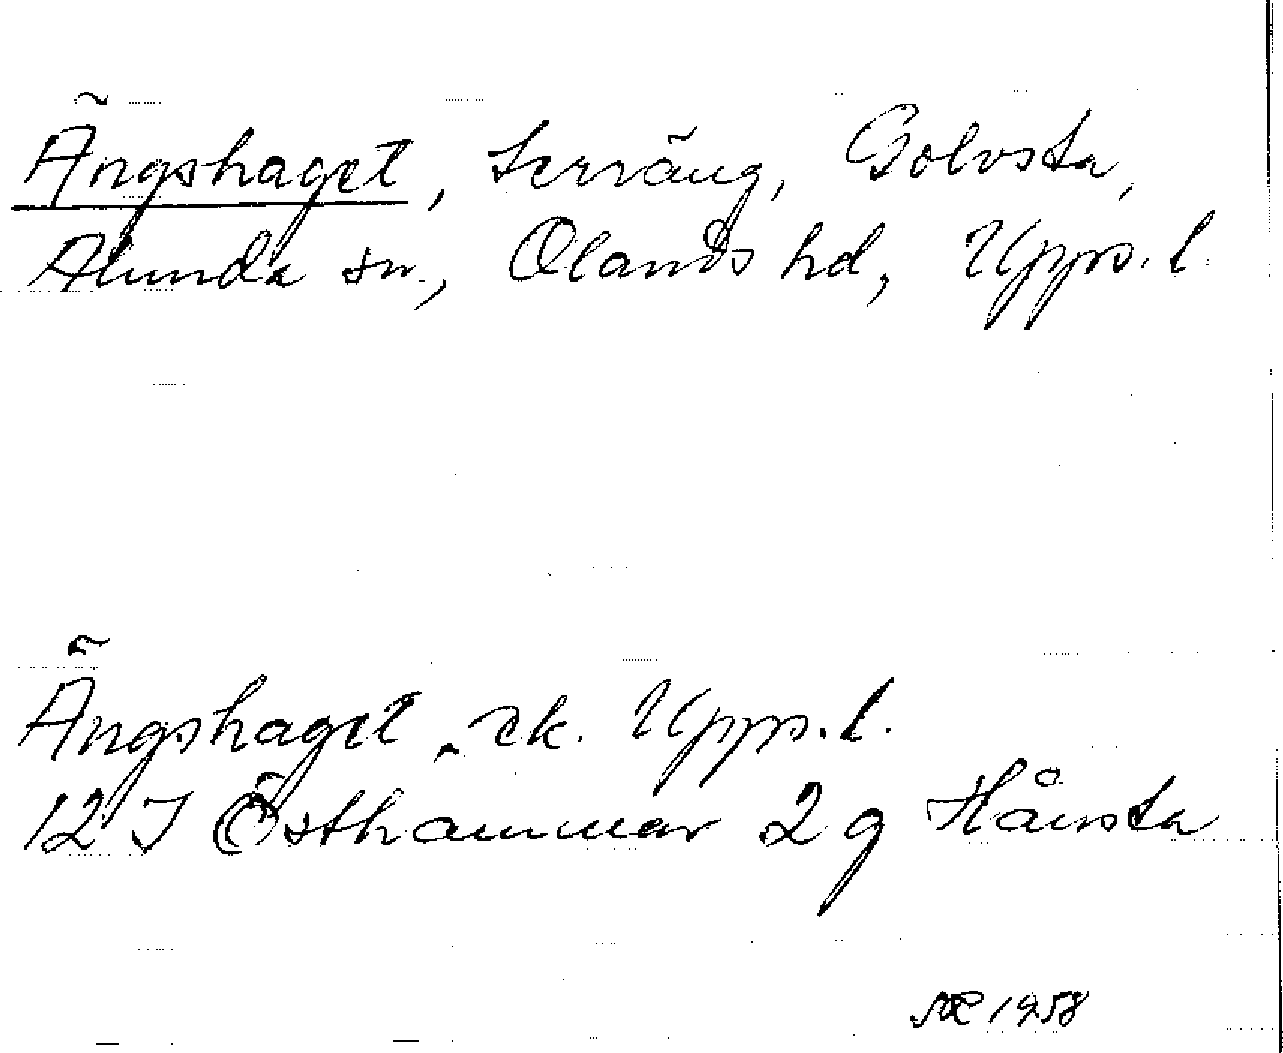 Ängshaget, terräng, Golvsta,
Alunda sn., Olands hd, Upps. l.
Ängshaget, ek. Upps. l.
12 I Östhammar 2 g Hånsta
1958